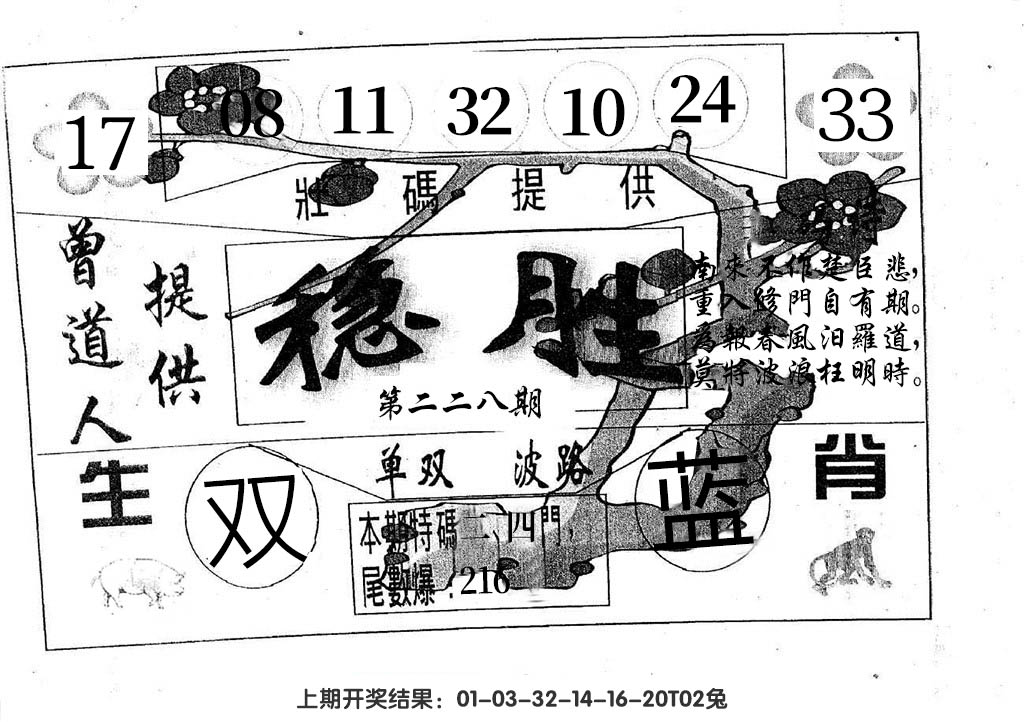 17 08 11 32 10 24 33
壯碼提供
曾道人
提供
稳胜
第二二八期
南來不作楚臣悲，
重入修門自有期。
為報春風汨羅道，
莫將波浪枉明時。
生肖
单双 波路
双
蓝
本期特碼二、四門，
尾數爆：216
上期开奖结果：01-03-32-14-16-20T02兔